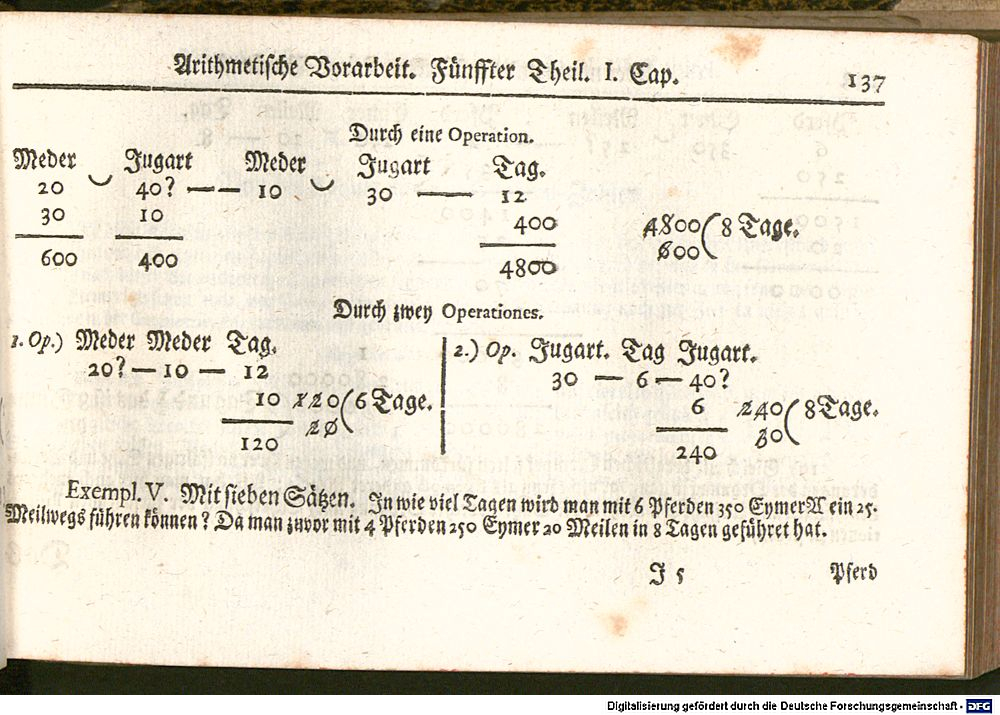 Arithmetische Vorarbeit. Fünffter Theil. I. Cap. 137
Durch eine Operation.
Meder Jugart Meder Jugart Tag.
20 ‿ 40? — — 10 ‿ 30 — 12
30 10 400 4800 ( 8 Tage.
600 400 4800 600
Durch zwey Operationes.
1. Op.) Meder Meder Tag.
20? — 10 — 12
10 120 ( 6 Tage.
120 20
2.) Op. Jugart. Tag Jugart.
30 — 6 — 40?
6 240 ( 8 Tage.
240 30
Exempl. V. Mit sieben Sätzen. In wie viel Tagen wird man mit 6 Pferden 350 Eymer ein 25.
Meilwegs führen können? Da man zuvor mit 4 Pferden 250 Eymer 20 Meilen in 8 Tagen geführet hat.
J 5 Pferd
Digitalisierung gefördert durch die Deutsche Forschungsgemeinschaft - DFG